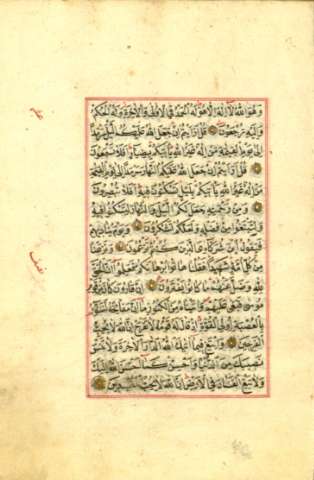 وَهُوَ اللّٰهُ لَا اِلٰهَ اِلَّا هُوَ لَهُ الْحَمْدُ فِي الْاُولٰى وَالْاٰخِرَةِ وَلَهُ الْحُكْمُ
وَاِلَيْهِ تُرْجَعُونَ قُلْ اَرَاَيْتُمْ اِنْ جَعَلَ اللّٰهُ عَلَيْكُمُ الَّيْلَ سَرْمَدًا
اِلٰى يَوْمِ الْقِيٰمَةِ مَنْ اِلٰهٌ غَيْرُ اللّٰهِ يَاْتِيكُمْ بِضِيَاءٍ اَفَلَا تَسْمَعُونَ
قُلْ اَرَاَيْتُمْ اِنْ جَعَلَ اللّٰهُ عَلَيْكُمُ النَّهَارَ سَرْمَدًا اِلٰى يَوْمِ الْقِيٰمَةِ
مَنْ اِلٰهٌ غَيْرُ اللّٰهِ يَاْتِيكُمْ بِلَيْلٍ تَسْكُنُونَ فِيهِ اَفَلَا تُبْصِرُونَ
وَمِنْ رَحْمَتِهِ جَعَلَ لَكُمُ الَّيْلَ وَالنَّهَارَ لِتَسْكُنُوا فِيهِ
وَلِتَبْتَغُوا مِنْ فَضْلِهِ وَلَعَلَّكُمْ تَشْكُرُونَ وَيَوْمَ يُنَادِيهِمْ
فَيَقُولُ اَيْنَ شُرَكَاءِيَ الَّذِينَ كُنْتُمْ تَزْعُمُونَ وَنَزَعْنَا
مِنْ كُلِّ اُمَّةٍ شَهِيدًا فَقُلْنَا هَاتُوا بُرْهَانَكُمْ فَعَلِمُوا اَنَّ الْحَقَّ
لِلّٰهِ وَضَلَّ عَنْهُمْ مَا كَانُوا يَفْتَرُونَ اِنَّ قَارُونَ كَانَ مِنْ قَوْمِ
مُوسٰى فَبَغٰى عَلَيْهِمْ وَاٰتَيْنَاهُ مِنَ الْكُنُوزِ مَا اِنَّ مَفَاتِحَهُ لَتَنُوءُ
بِالْعُصْبَةِ اُولِي الْقُوَّةِ اِذْ قَالَ لَهُ قَوْمُهُ لَا تَفْرَحْ اِنَّ اللّٰهَ لَا يُحِبُّ
الْفَرِحِينَ وَابْتَغِ فِيمَا اٰتٰيكَ اللّٰهُ الدَّارَ الْاٰخِرَةَ وَلَا تَنْسَ
نَصِيبَكَ مِنَ الدُّنْيَا وَاَحْسِنْ كَمَا اَحْسَنَ اللّٰهُ اِلَيْكَ
وَلَا تَبْغِ الْفَسَادَ فِي الْاَرْضِ اِنَّ اللّٰهَ لَا يُحِبُّ الْمُفْسِدِينَ
نصف